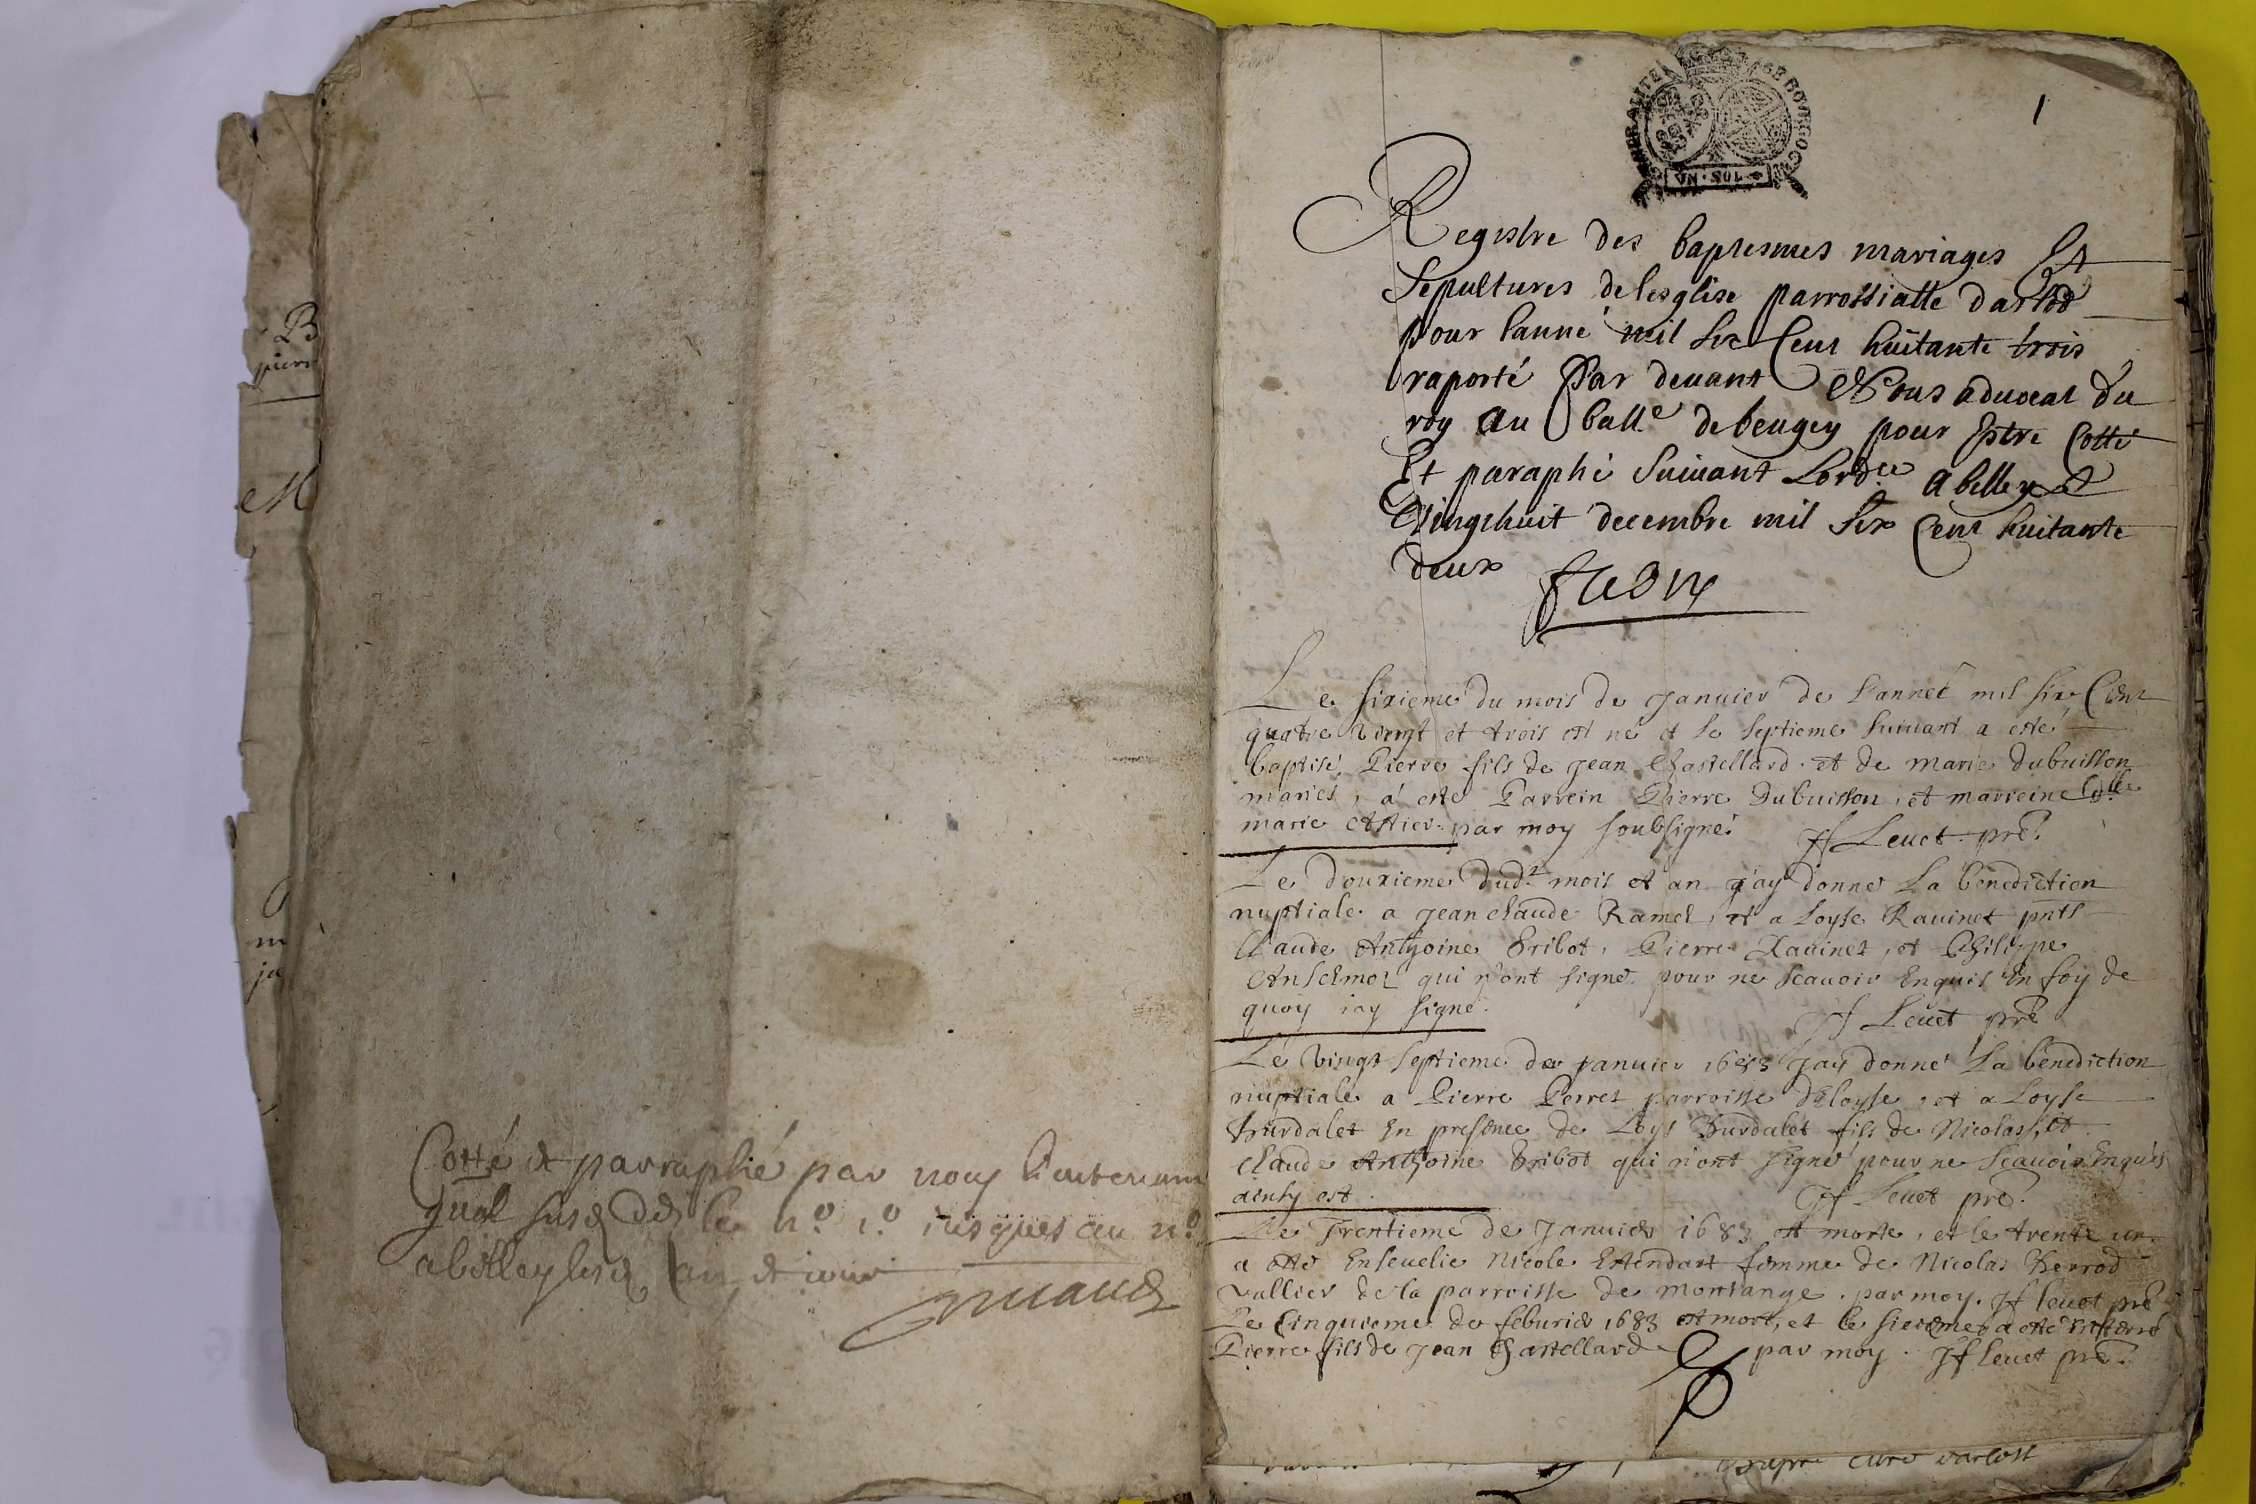 B
pierr
M
m
ja
Cotté et parraphié par nous Lieutenant
gnal susd dès le n.º 1.º jusques au n.º
a belley lesd an et jour
1
UN · SOL
Registre des baptesmes mariages Et
Sepultures de lesglise parrossialle darlod
pour lanné mil six Cent huitante trois
raporté Par devant Nous advocat du
roy au ball.e de beugey pour Estre Cotté
Et paraphé Suivant Lord.ce a belley Le
Vingthuit decembre mil Six Cent huitante
deux
Le sixieme du mois de Januier de l'année mil six Cent
quatre vingt et trois est né et le septieme suiuant a esté
baptisé Pierre fils de Jean Chastellard et de marie dubuisson
mariés, a esté Parrein Pierre Dubuisson, et marreine
marie par moy soubsigné. Jf Leuet pre.
Le douxieme dud.t mois et an j'ay donné La benediction
nuptiale a Jean claude Ramel, et a Loyse Rauinet pnts
Claude Anthoine Bribot, Pierre Rauinet, et Philippe
Anselmoz qui n'ont signé pour ne scauoir Enquis En foy de
quoy jay signé. Jf Leuet pre
Le vingt septieme de januier 1683 Jay donné La benediction
nuptiale a Pierre Perret parroisse deloyse, et a Loyse
burdalet En presence de Loys Burdalet fils de Nicolas, et
claude Anthoine Bribot qui n'ont signé pour ne scauoir Enquis
ainsy est. Jf Leuet pre.
Le Trentieme de Januier 1683 est morte, et le trente un
a esté Enseuelie Nicole Estendart femme de Nicolas
vallier de la parroisse de montange. par moy. Jf leuet pre
Le Cinquieme de feburier 1683 est mort, et le sixieme a esté enterré
Pierre fils de Jean Chastellard par moy. Jf leuet pre.
curé darlost